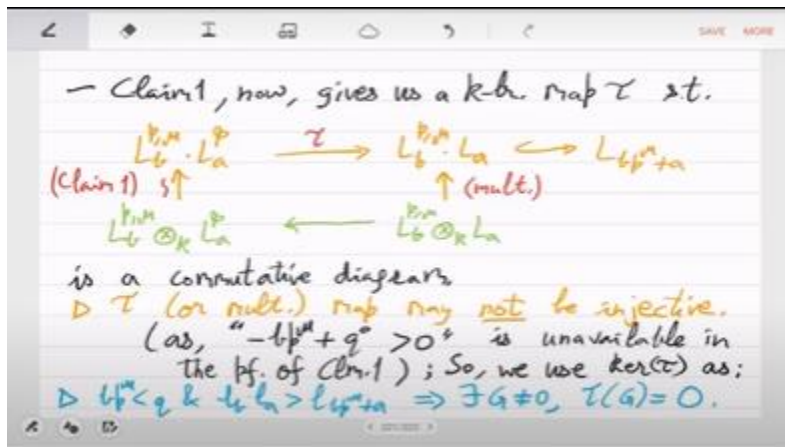 SAVE MORE
— Claim 1, now, gives us a k-lin. map τ s.t.
L_b^{p,μ} · L_a^φ —τ→ L_b^{p,μ} · L_a ↪ L_{bp^μ+a}
(Claim 1) ≀↑ ↑ (mult.)
L_b^{p,μ} ⊗_k L_a^φ ← L_b^{p,μ} ⊗_k L_a
is a commutative diagram
▷ τ (or mult.) map may not be injective.
(as, "-bp^μ + q > 0" is unavailable in
the pf. of Clm.1); So, we use ker(τ) as:
▷ bp^μ < q & l_b l_a > l_{bp^μ+a} ⇒ ∃ G≠0, τ(G) = 0.